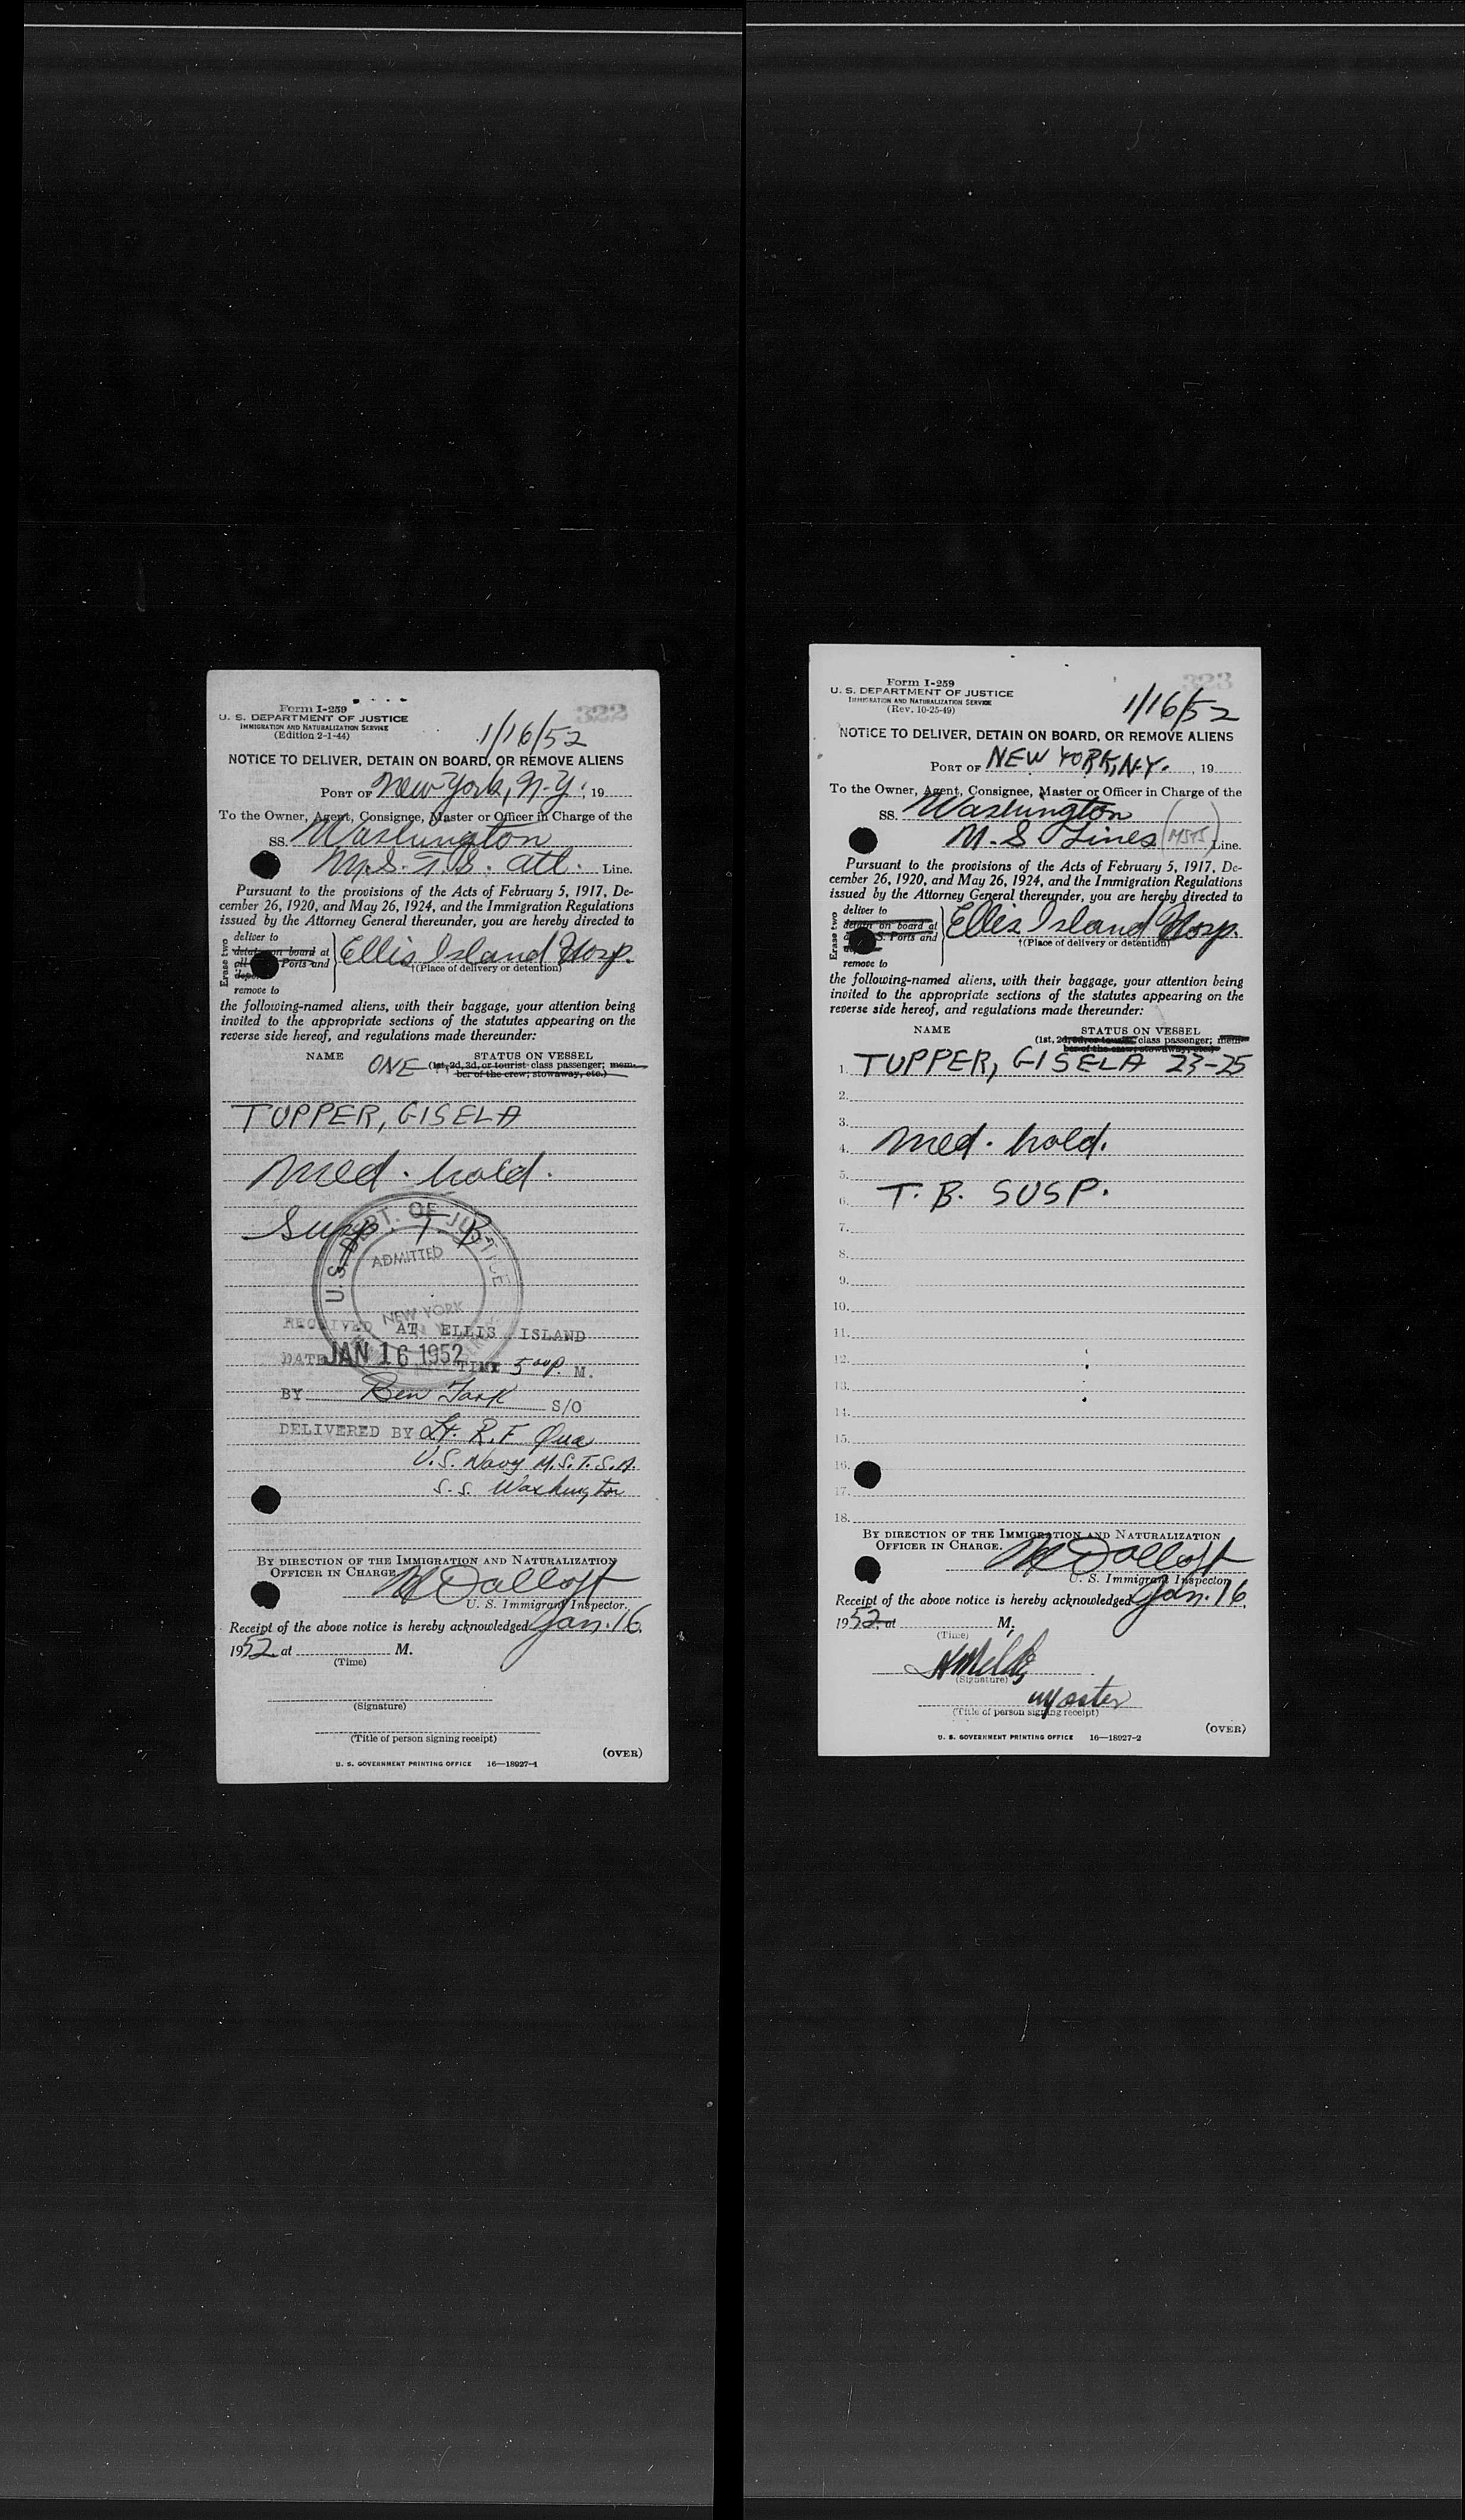 Form I-259
U. S. DEPARTMENT OF JUSTICE
IMMIGRATION AND NATURALIZATION SERVICE
(Edition 2-1-44)
322
1/16/52
NOTICE TO DELIVER, DETAIN ON BOARD, OR REMOVE ALIENS
PORT OF New York, N.Y., 19
To the Owner, Agent, Consignee, Master or Officer in Charge of the
SS. Washington
M.S.T.S. Atl. Line.
Pursuant to the provisions of the Acts of February 5, 1917, De-
cember 26, 1920, and May 26, 1924, and the Immigration Regulations
issued by the Attorney General thereunder, you are hereby directed to
Erase two
deliver to
detain on board at
all Ports and
remove to
Ellis Island Hosp.
†(Place of delivery or detention)
the following-named aliens, with their baggage, your attention being
invited to the appropriate sections of the statutes appearing on the
reverse side hereof, and regulations made thereunder:
NAME
ONE
STATUS ON VESSEL
(1st, 2d, 3d, or tourist class passenger; mem-
ber of the crew; stowaway, etc.)
TUPPER, GISELA
Med. hold.
Susp. T B
U.S. DEPT. OF JUSTICE
ADMITTED
NEW YORK
RECEIVED AT ELLIS ISLAND
DATE JAN 16 1952 TIME 5 00 P. M.
BY Ben S/O
DELIVERED BY Lt. R. F. Qua
U.S. Navy M.S.T.S.A.
S.S. Washington
BY DIRECTION OF THE IMMIGRATION AND NATURALIZATION
OFFICER IN CHARGE.
U. S. Immigrant Inspector.
Receipt of the above notice is hereby acknowledged Jan. 16,
1952 at M.
(Time)
(Signature)
(Title of person signing receipt)
(OVER)
U. S. GOVERNMENT PRINTING OFFICE 16—18927-1
Form I-259
U. S. DEPARTMENT OF JUSTICE
IMMIGRATION AND NATURALIZATION SERVICE
(Rev. 10-25-49)
323
1/16/52
NOTICE TO DELIVER, DETAIN ON BOARD, OR REMOVE ALIENS
PORT OF NEW YORK, N.Y., 19
To the Owner, Agent, Consignee, Master or Officer in Charge of the
SS. Washington
M. S Lines (MSTS) Line.
Pursuant to the provisions of the Acts of February 5, 1917, De-
cember 26, 1920, and May 26, 1924, and the Immigration Regulations
issued by the Attorney General thereunder, you are hereby directed to
Erase two
deliver to
detain on board at
S. Ports and
remove to
Ellis Island Hosp.
†(Place of delivery or detention)
the following-named aliens, with their baggage, your attention being
invited to the appropriate sections of the statutes appearing on the
reverse side hereof, and regulations made thereunder:
NAME
STATUS ON VESSEL
(1st, 2d, 3d, or tourist class passenger; mem-
ber of the crew; stowaway, etc.)
1. TUPPER, GISELA 23-25
2.
3.
4. Med. hold.
5.
6. T. B. SUSP.
7.
8.
9.
10.
11.
12.
13.
14.
15.
16.
17.
18.
BY DIRECTION OF THE IMMIGRATION AND NATURALIZATION
OFFICER IN CHARGE.
U. S. Immigrant Inspector
Receipt of the above notice is hereby acknowledged Jan. 16,
1952 at M.
(Time)
(Signature)
Master
(Title of person signing receipt)
(OVER)
U. S. GOVERNMENT PRINTING OFFICE 16—18927-2